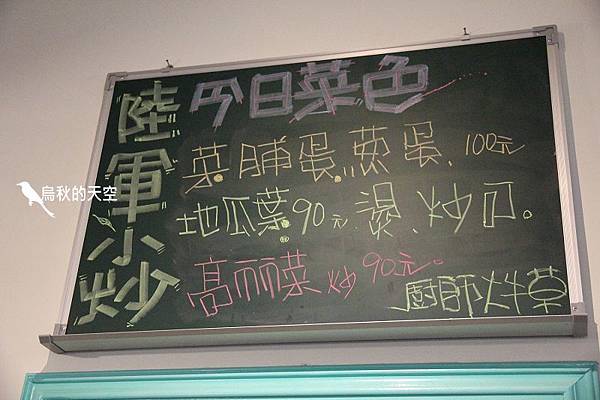 陸軍小炒
今日菜色
菜脯蛋.蔥蛋.100元
地瓜葉.90元 燙.炒口。
高麗菜炒90元。
廚師炒草
烏秋的天空